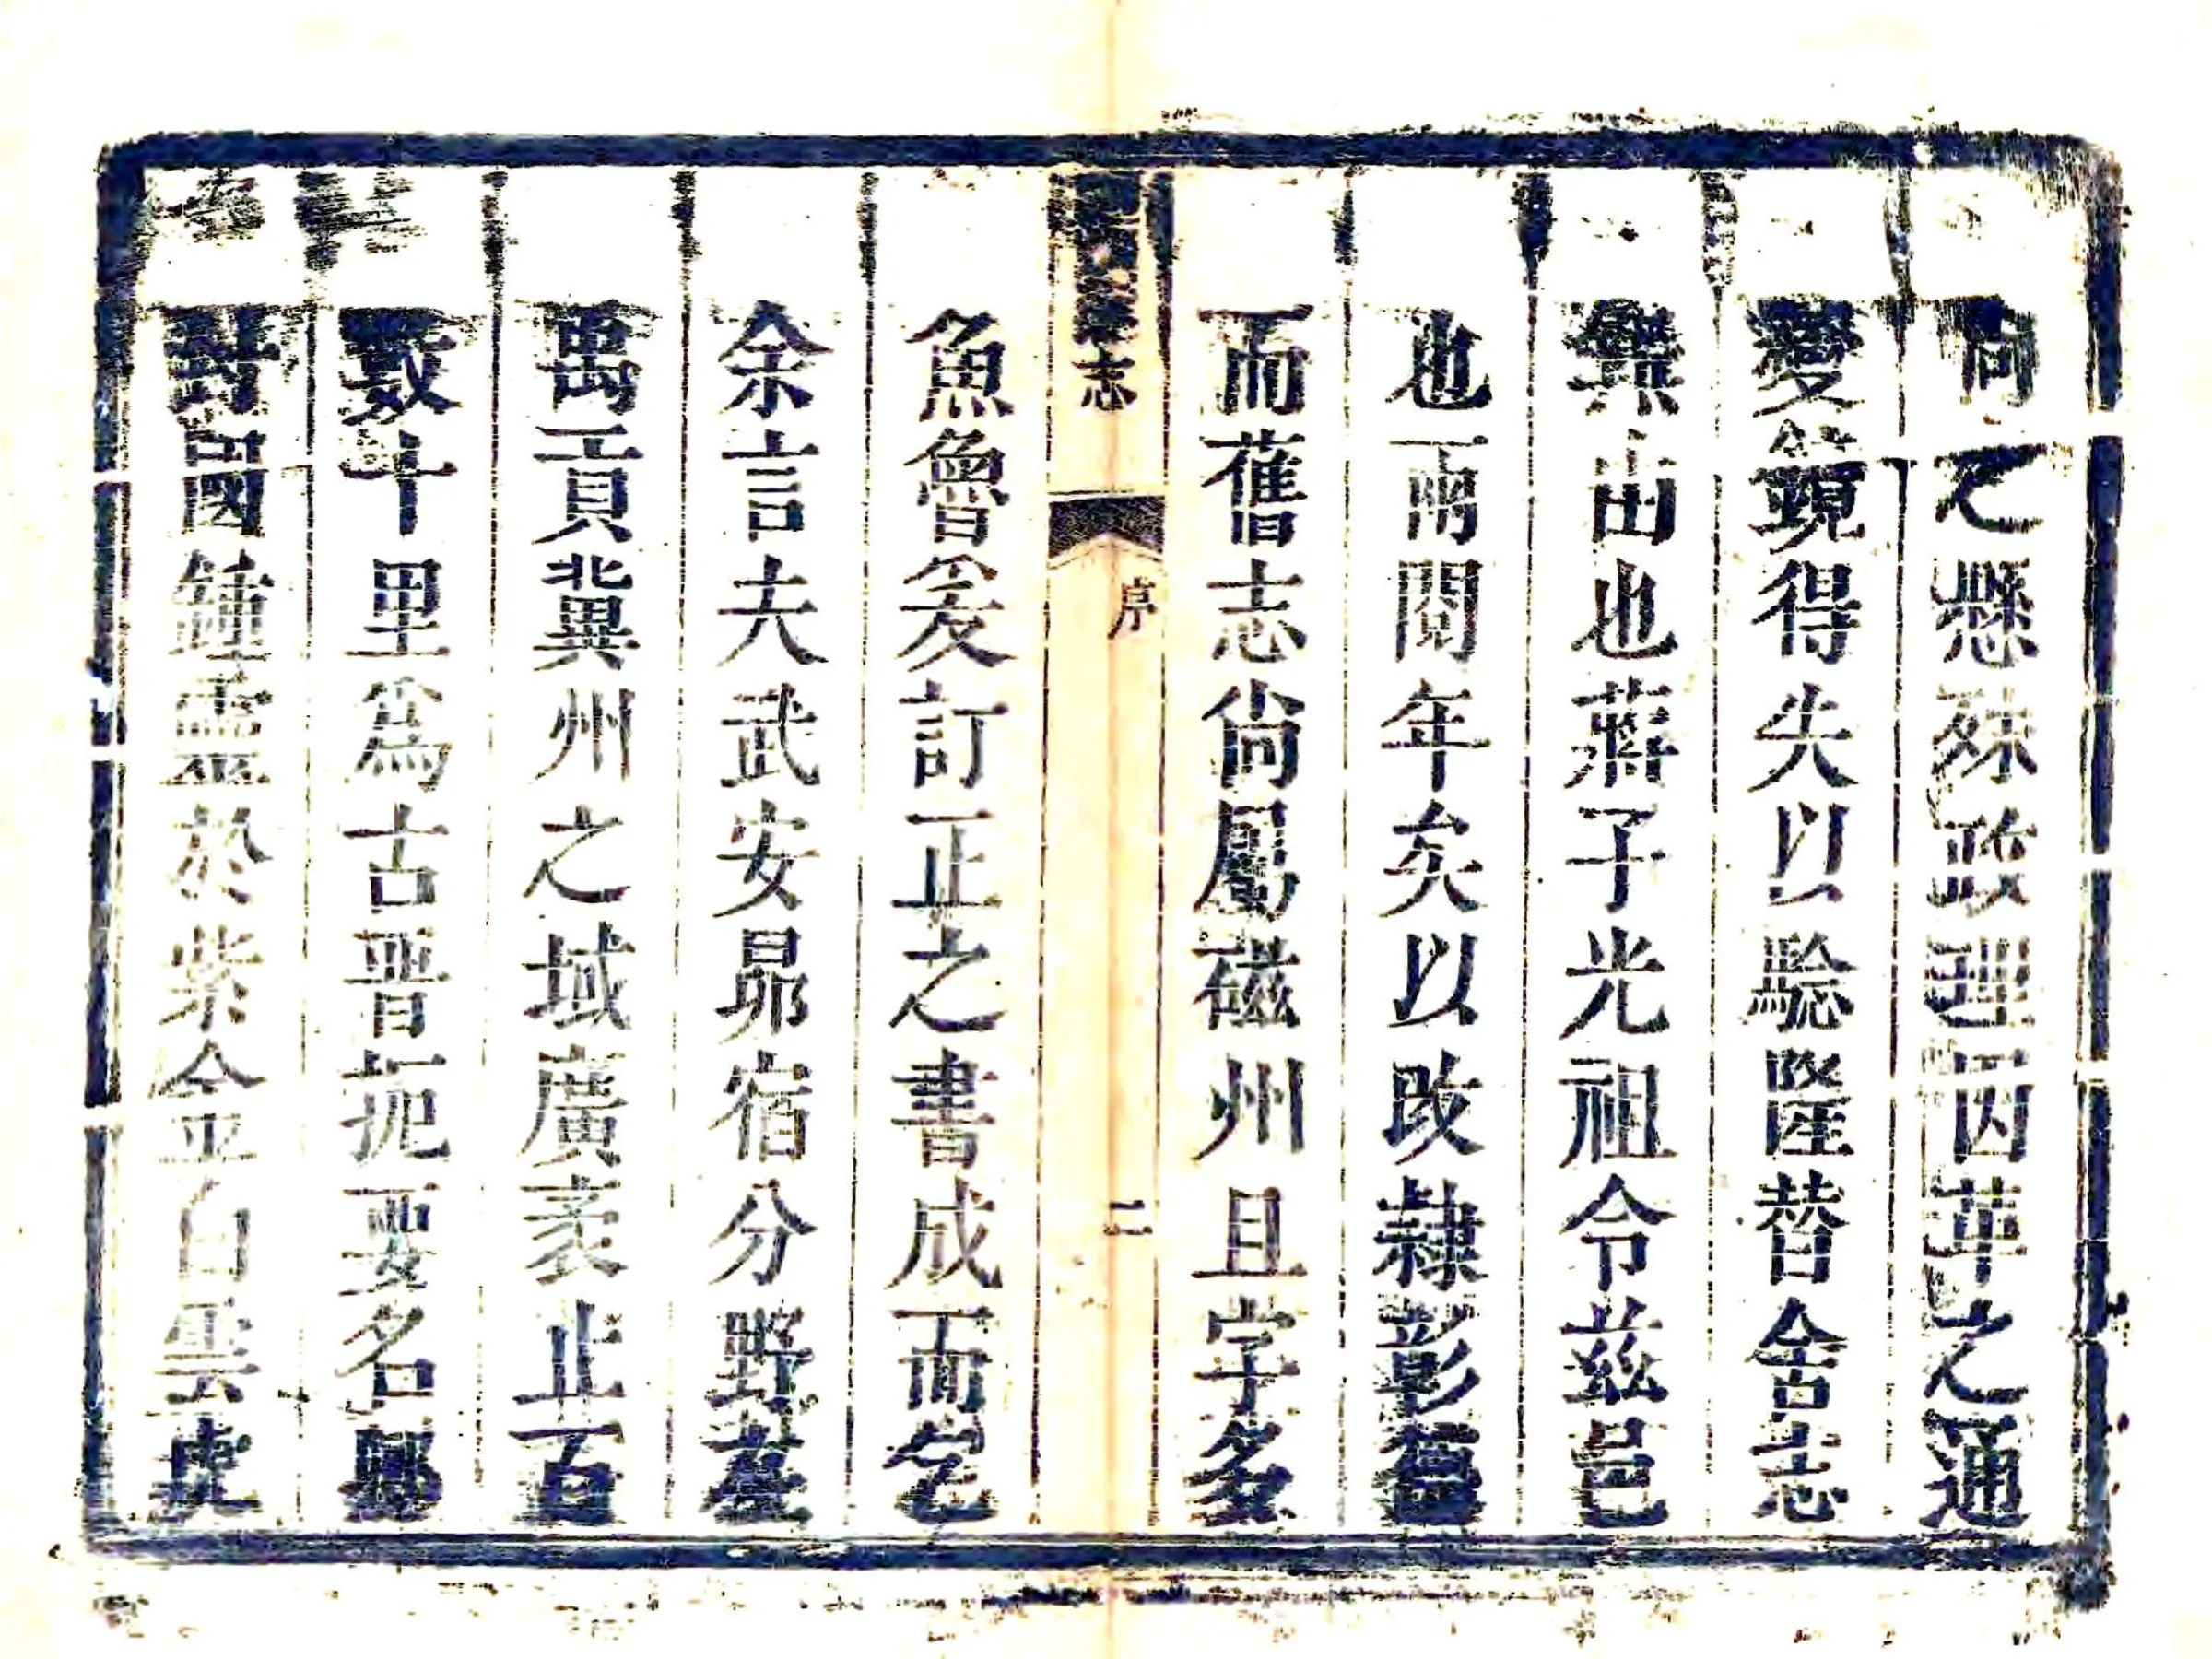 尚之懸殊政理因革之通
變鏡得失以驗隆替舍志
無由也蔣子光祖令茲邑
也兩閱年矣以改隸彰德
而舊志尚屬磁州且字多
武安縣志
序
二
魚魯爰訂正之書成而乞
余言夫武安昴宿分野在
禹貢冀州之域廣袤止百
數十里爲古晋扼要名鄉
封國鍾靈於紫金亚白雲虎